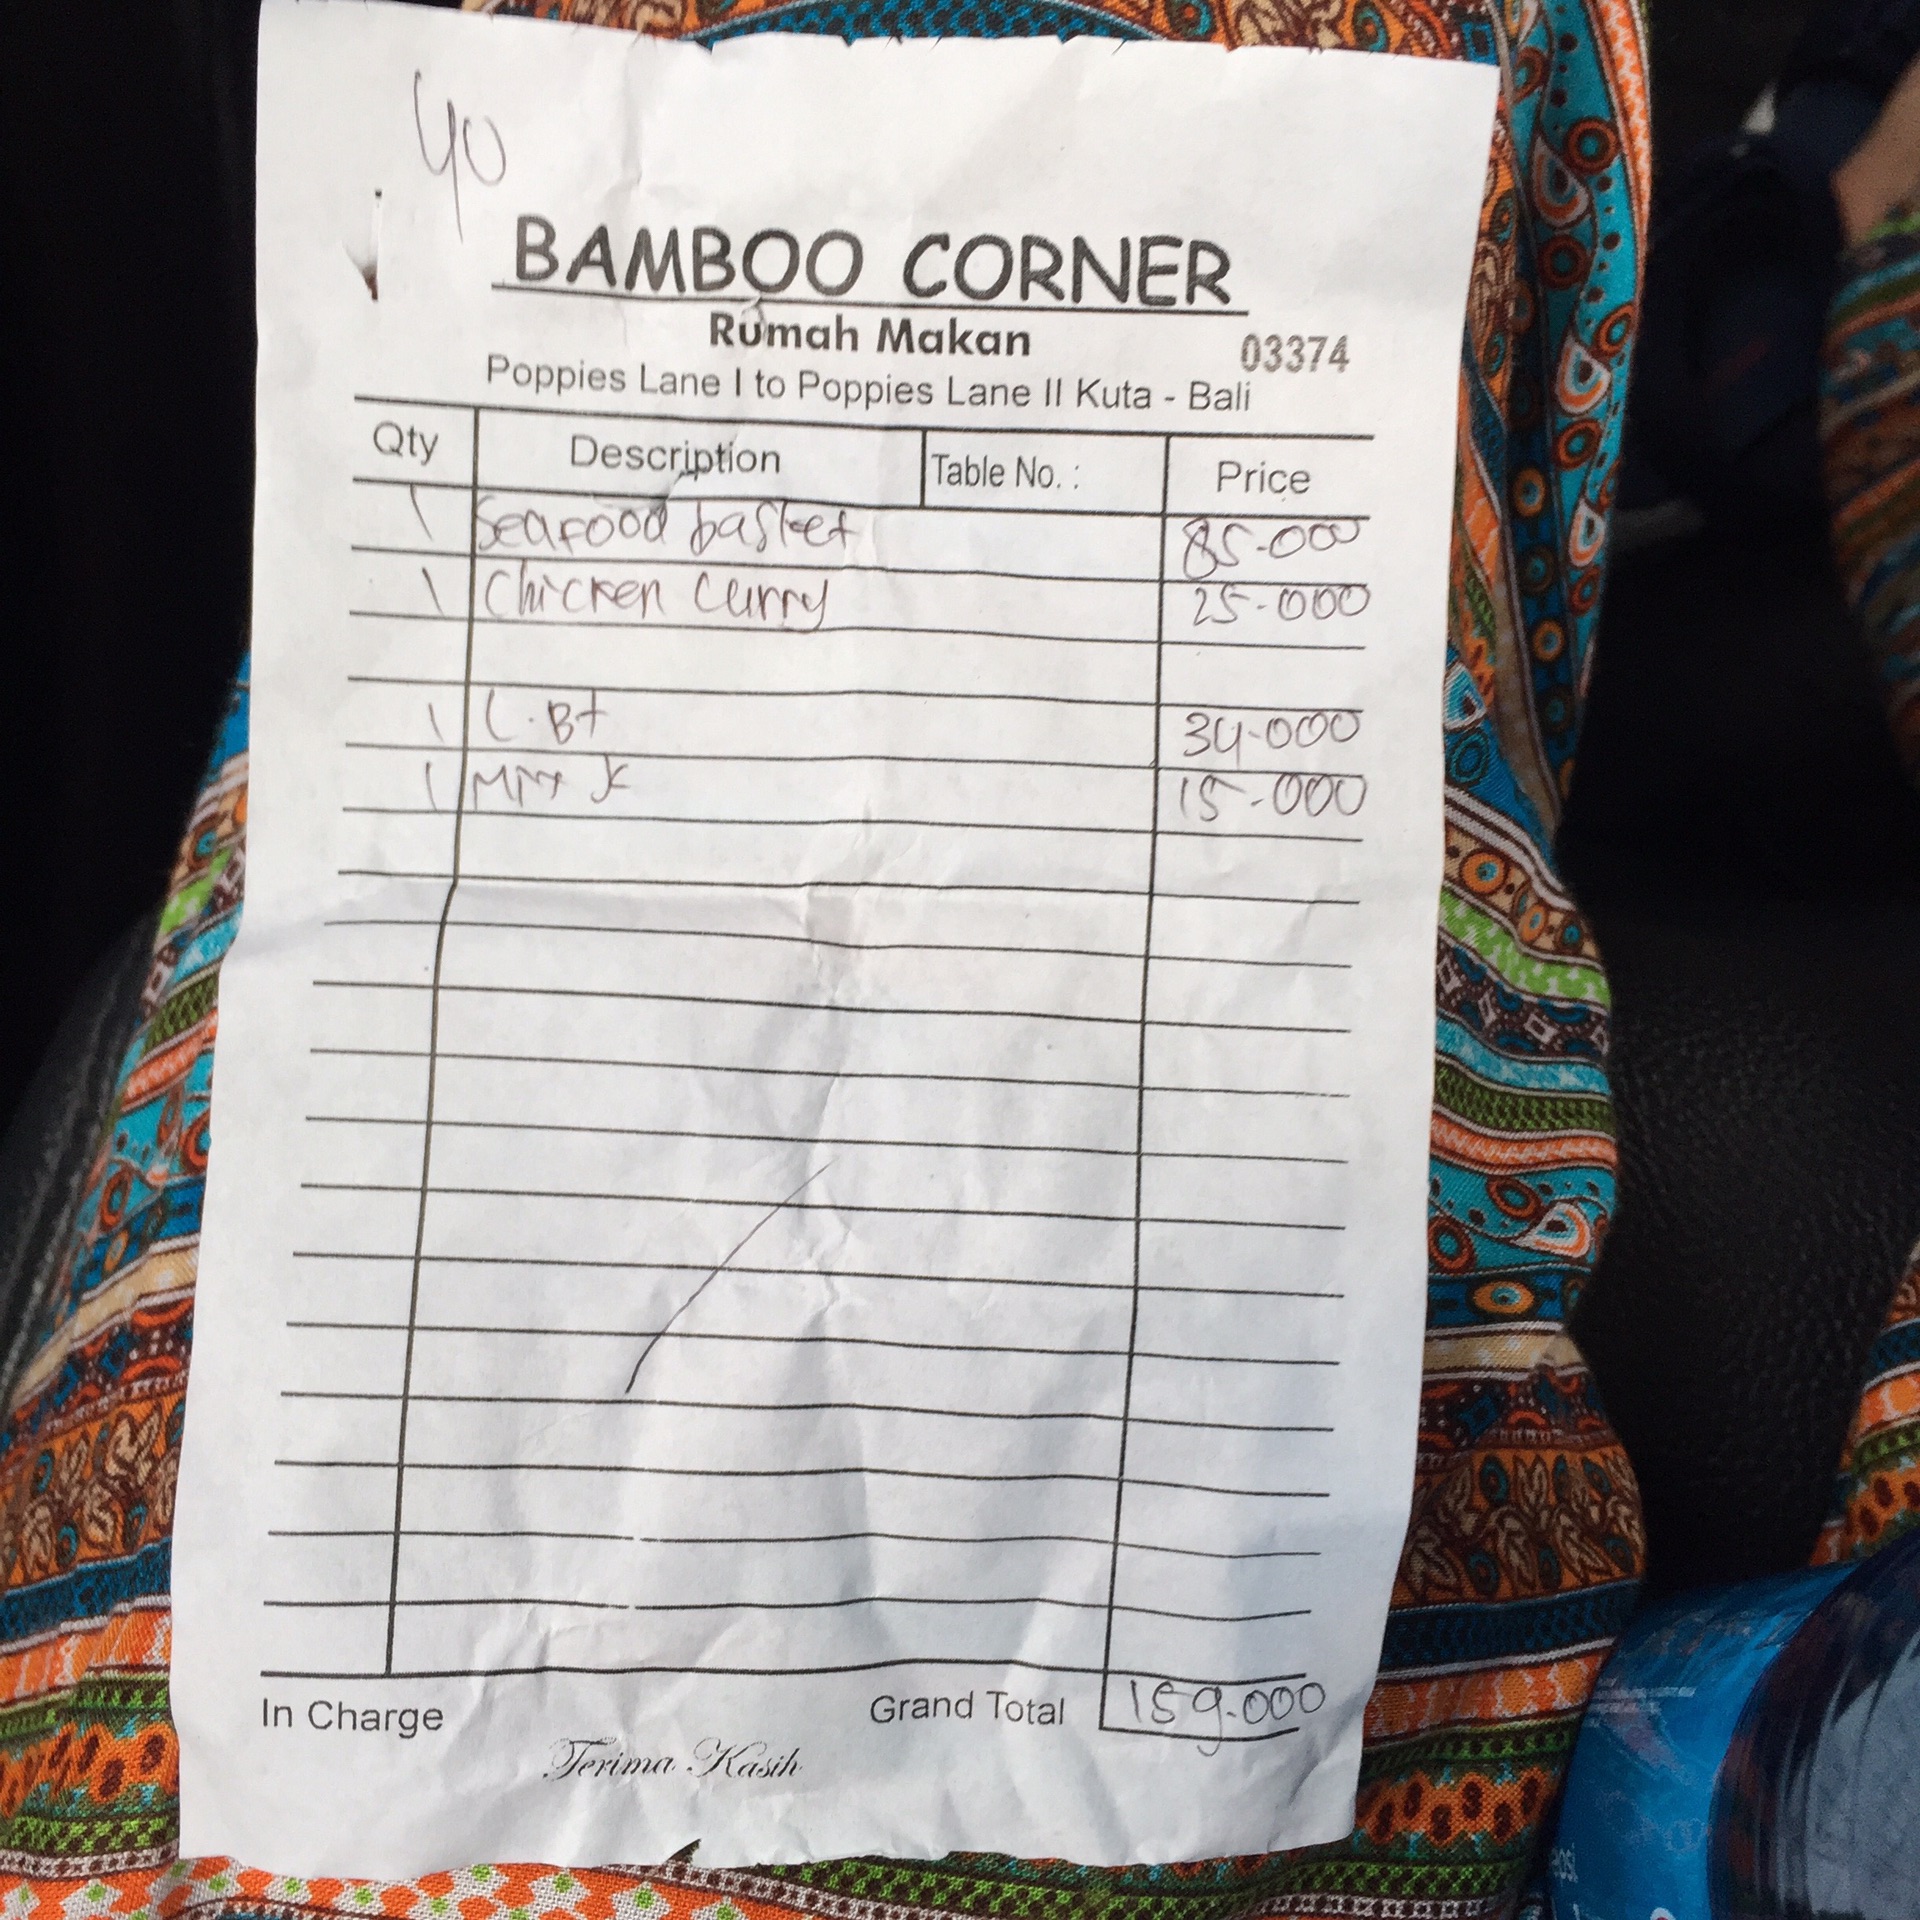 40
BAMBOO CORNER
Rumah Makan
03374
Poppies Lane I to Poppies Lane II Kuta - Bali
Qty Description Table No. : Price
1 Seafood basket 85.000
1 Chicken curry 25.000
1 L.Bt 34.000
1 Mix Jc 15.000
In Charge Grand Total 159.000
Terima Kasih